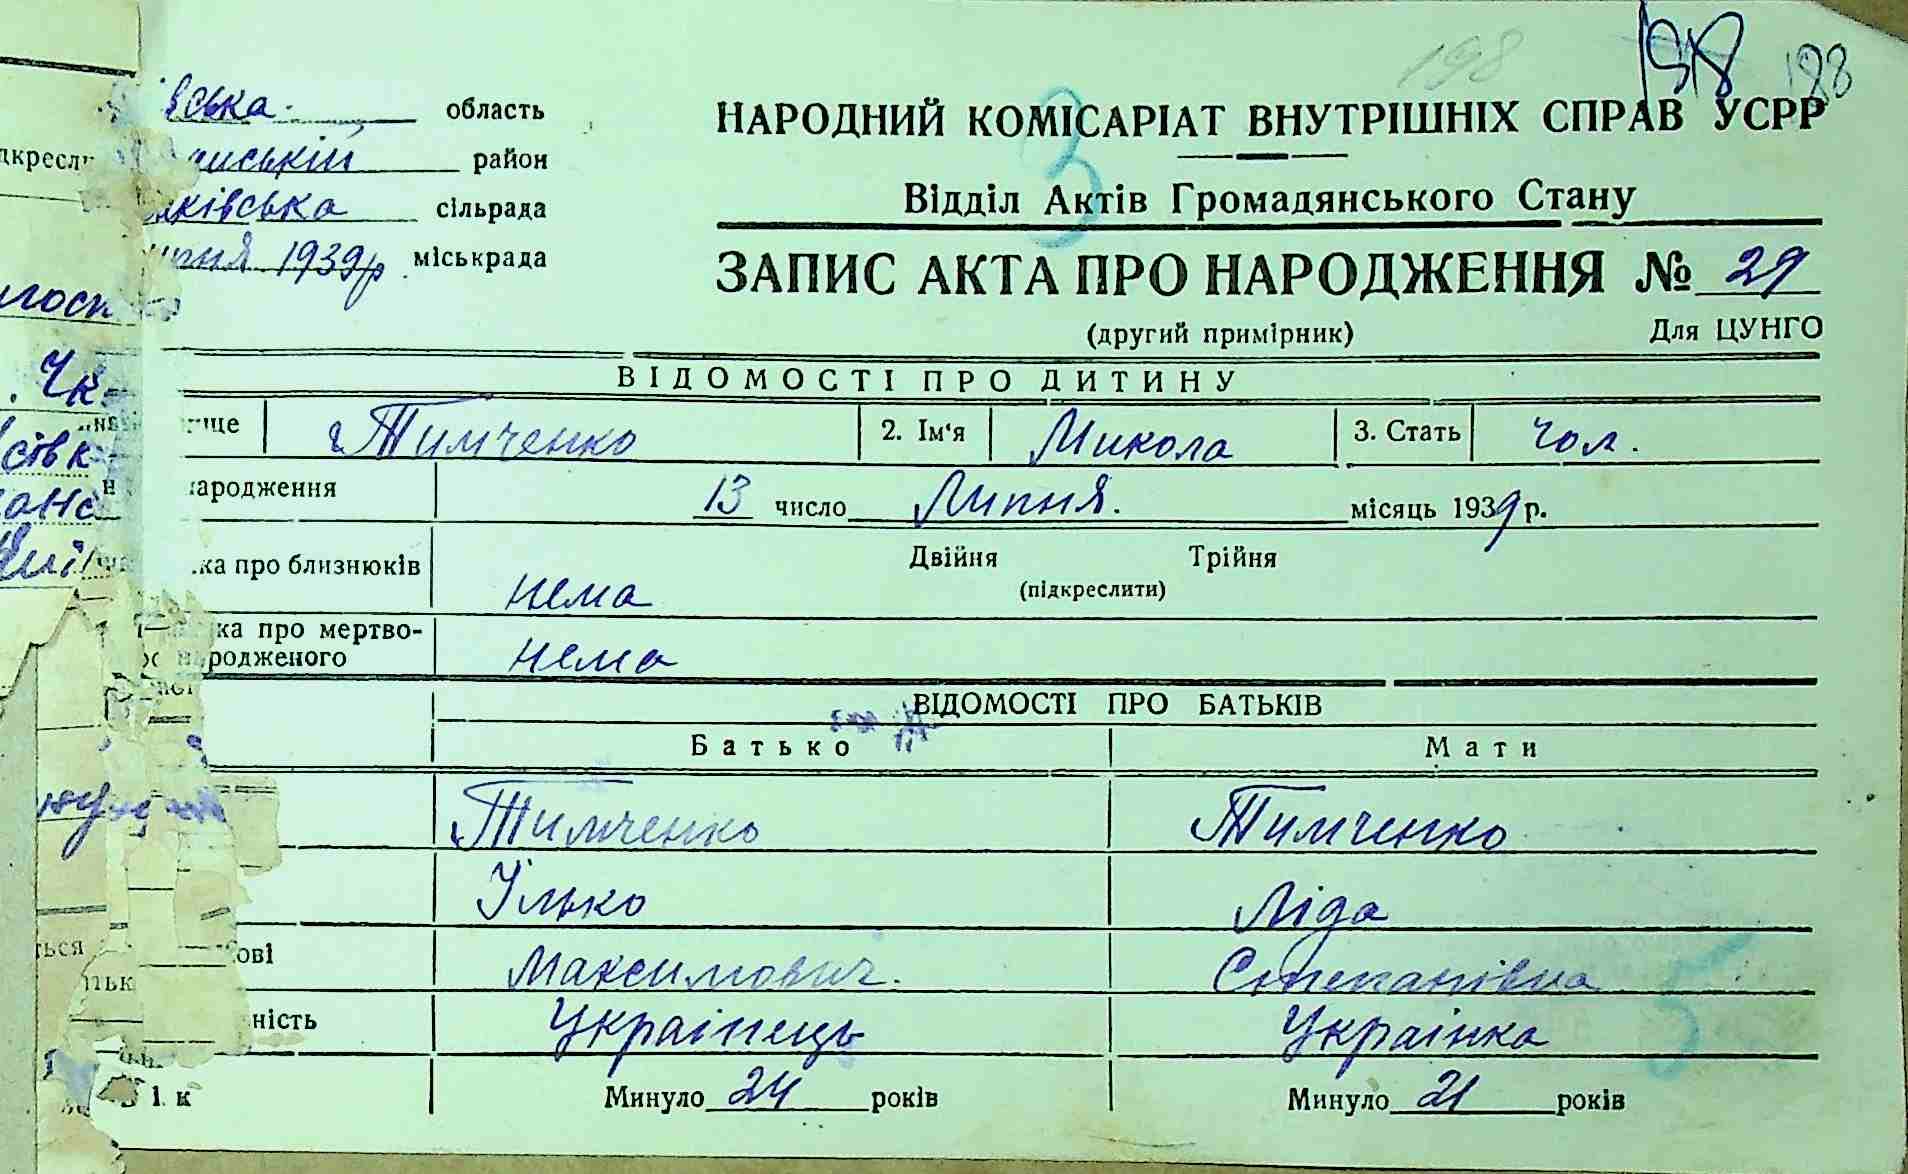 198 198 198
вська область
ський район
ківська сільрада
1939р. міськрада
3
НАРОДНИЙ КОМІСАРІАТ ВНУТРІШНІХ СПРАВ УСРР
Відділ Актів Громадянського Стану
ЗАПИС АКТА ПРО НАРОДЖЕННЯ № 29
(другий примірник) Для ЦУНГО
ВІДОМОСТІ ПРО ДИТИНУ
ище Тимченко 2. Ім'я Микола 3. Стать чол.
ародження 13 число Липня. місяць 1939 р.
ка про близнюків нема Двійня Трійня
(підкреслити)
ка про мертво-
родженого нема
ВІДОМОСТІ ПРО БАТЬКІВ
Батько Мати
Тимченко Тимченко
Ілько Ліда
ові Максимович. Степанівна
ність Украінець Украінка
Минуло 24 років Минуло 21 років